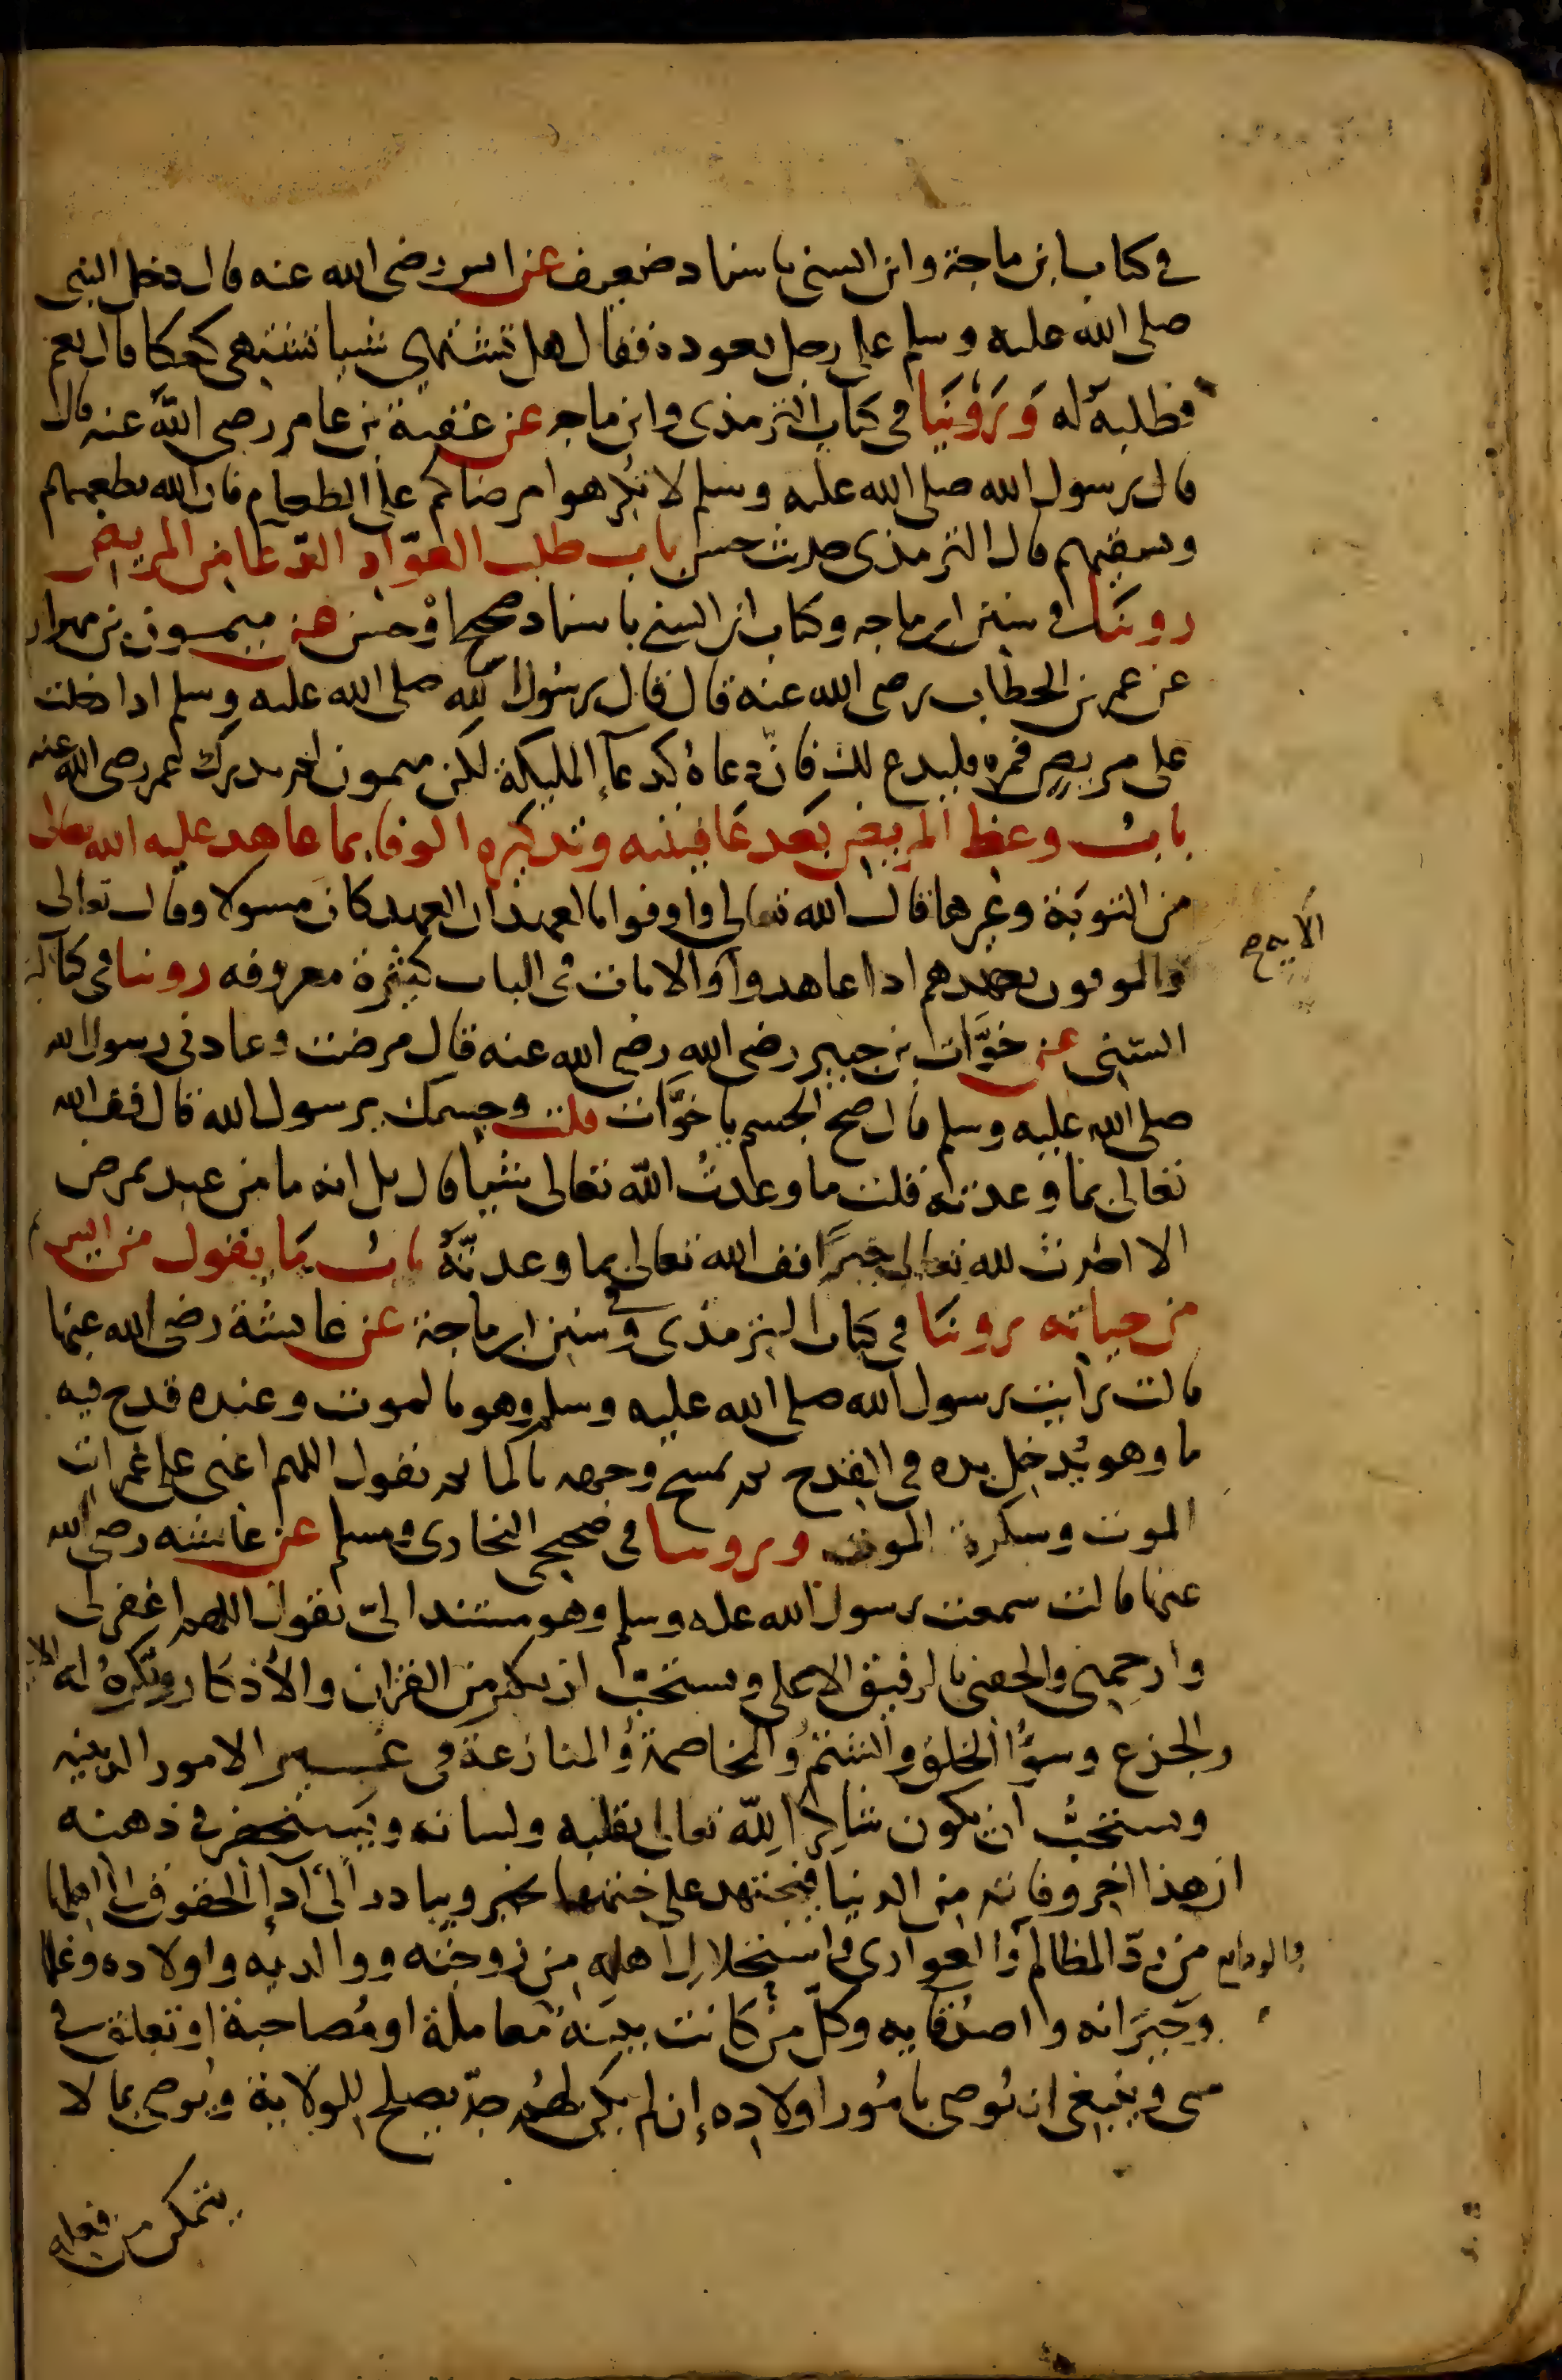 في كتاب ابن ماجة وابن السني باسناد ضعيف عن انس رضي الله عنه قال دخل النبي
صلى الله عليه وسلم على رجل يعوده فقال هل تشتهي شيا تشتهي كعكا قال نعم
فطلبه له وَرَوَيْنَا في كتاب الترمذي وابن ماجه عن عقبة بن عامر رضي الله عنه قال
قال رسول الله صلى الله عليه وسلم لا تُكرهوا مرضاكم على الطعام فان الله يطعمهم
ويسقيهم قال الترمذي حديث حسن باب طلب العوّاد الدّعا من المريض
روينا في سنن ابن ماجه وكتاب ابن السني باسناد صحيح اوْ حسن عن ميمون بن مهران
عن عمر بن الخطاب رضي الله عنه قال قال رسول الله صلى الله عليه وسلم اذا دخلت
على مريض فمره فليدع لك فانّ دعاهُ كدعآءِ الملئكة لكن ميمون لم يدرك عمر رضي الله عنه
بابُ وعظ المريض بَعد عَافيته وتذكيره الوفا بما عاهد عليه الله تعالى
من التوبَة وغيرها قال الله تعالى واوفوا بالعهد ان العهد كان مسولا وقال تعالى
والموفون بعهدهم اذا عاهدوا والايات في الباب كثيرة معروفه روينا في كتاب ابن
الايه صح
السّني عن خوَّات بن جبير رضي الله رضي الله عنه قال مرضت فعادني رسول الله
صلى الله عليه وسلم قال صح الجسم يا خوَّات قلت وجسمك يرسول الله قال فف الله
تعالى بما وعدته قلت ما وعدتُ الله تعالى شيا قال بلى انه ما من عبد يمرض
الا احْدث لله تعالى خيرًا فف الله تعالى بما وعدتَهُ بابُ مَا يقول من ايس
من حياته روينا في كتاب الترمذي وفي سنن ابن ماجة عن عايشة رضي الله عنها
قالت رايت رسول الله صلى الله عليه وسلم وهو بالموت وعنده قدح فيه
ما وهو يُدخل يده في القدح ثم يمسح وجهه بالما ثم يقول اللهم اعني على غمرات
الموت وسكرة الموت وروينا في صحيحي البخاري ومسلم عن عايشه رضي الله
عنها قالت سمعت رسول الله عله وسلم وهو مستند اليّ يقول اللهم اغفر لي
وارحمني والحقني بالرفيق الاعلى ويستحبّ ان يكثر من القران والأذكار ويُكرهُ له
والجزع وسُوء الخلق والشتمُ والمخاصمةُ والمنازعة في غير الامور الدينيه
ويستحبُّ ان يكون شاكِرًا للّه تعالى بقلبه ولسانه ويَستحضر في ذهنه
ان هذا اخر وقاته من الدنيا فيجتهد على ختمها بخير ويبادر الى أداء الحقوق الى اهلها
والودايع من ردّ المظالم والعواري واستحلال اهله من زوجته ووالديه واولاده وغلما
وجيرانه واصدقايه وكلّ من كانت بينَهُ معاملة او مُصاحبة او تعلق في
شي وينبغي ان يُوصي بامُور اولاده إن لم يكن لهُم جدّ يصلح للولاية ويُوصي بما لا
يتمكن من فعله